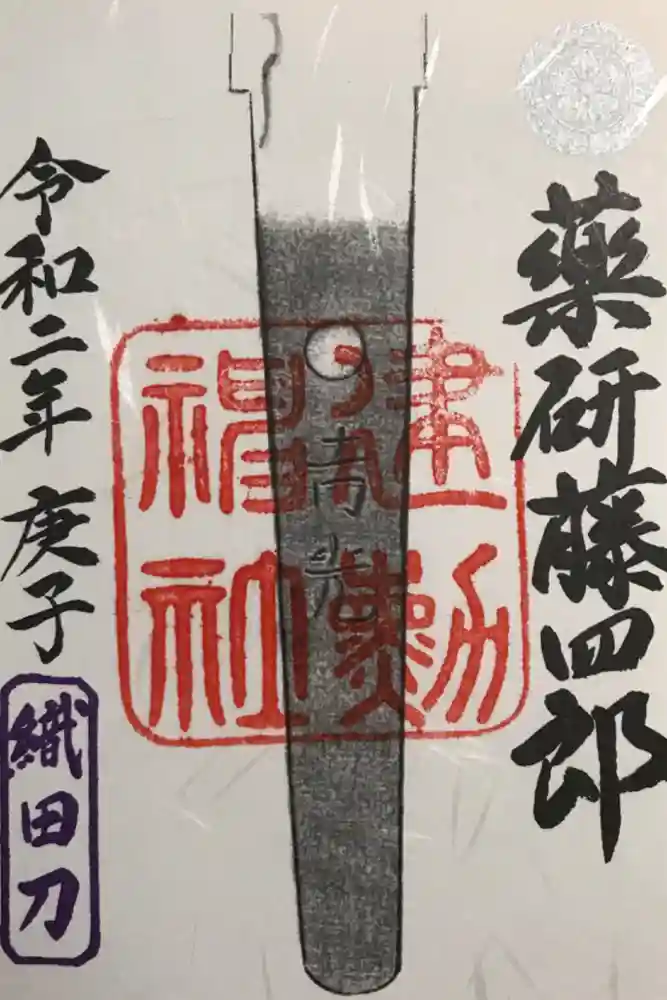 薬研藤四郎
建勲神社
吉光
令和二年 庚子
織田刀